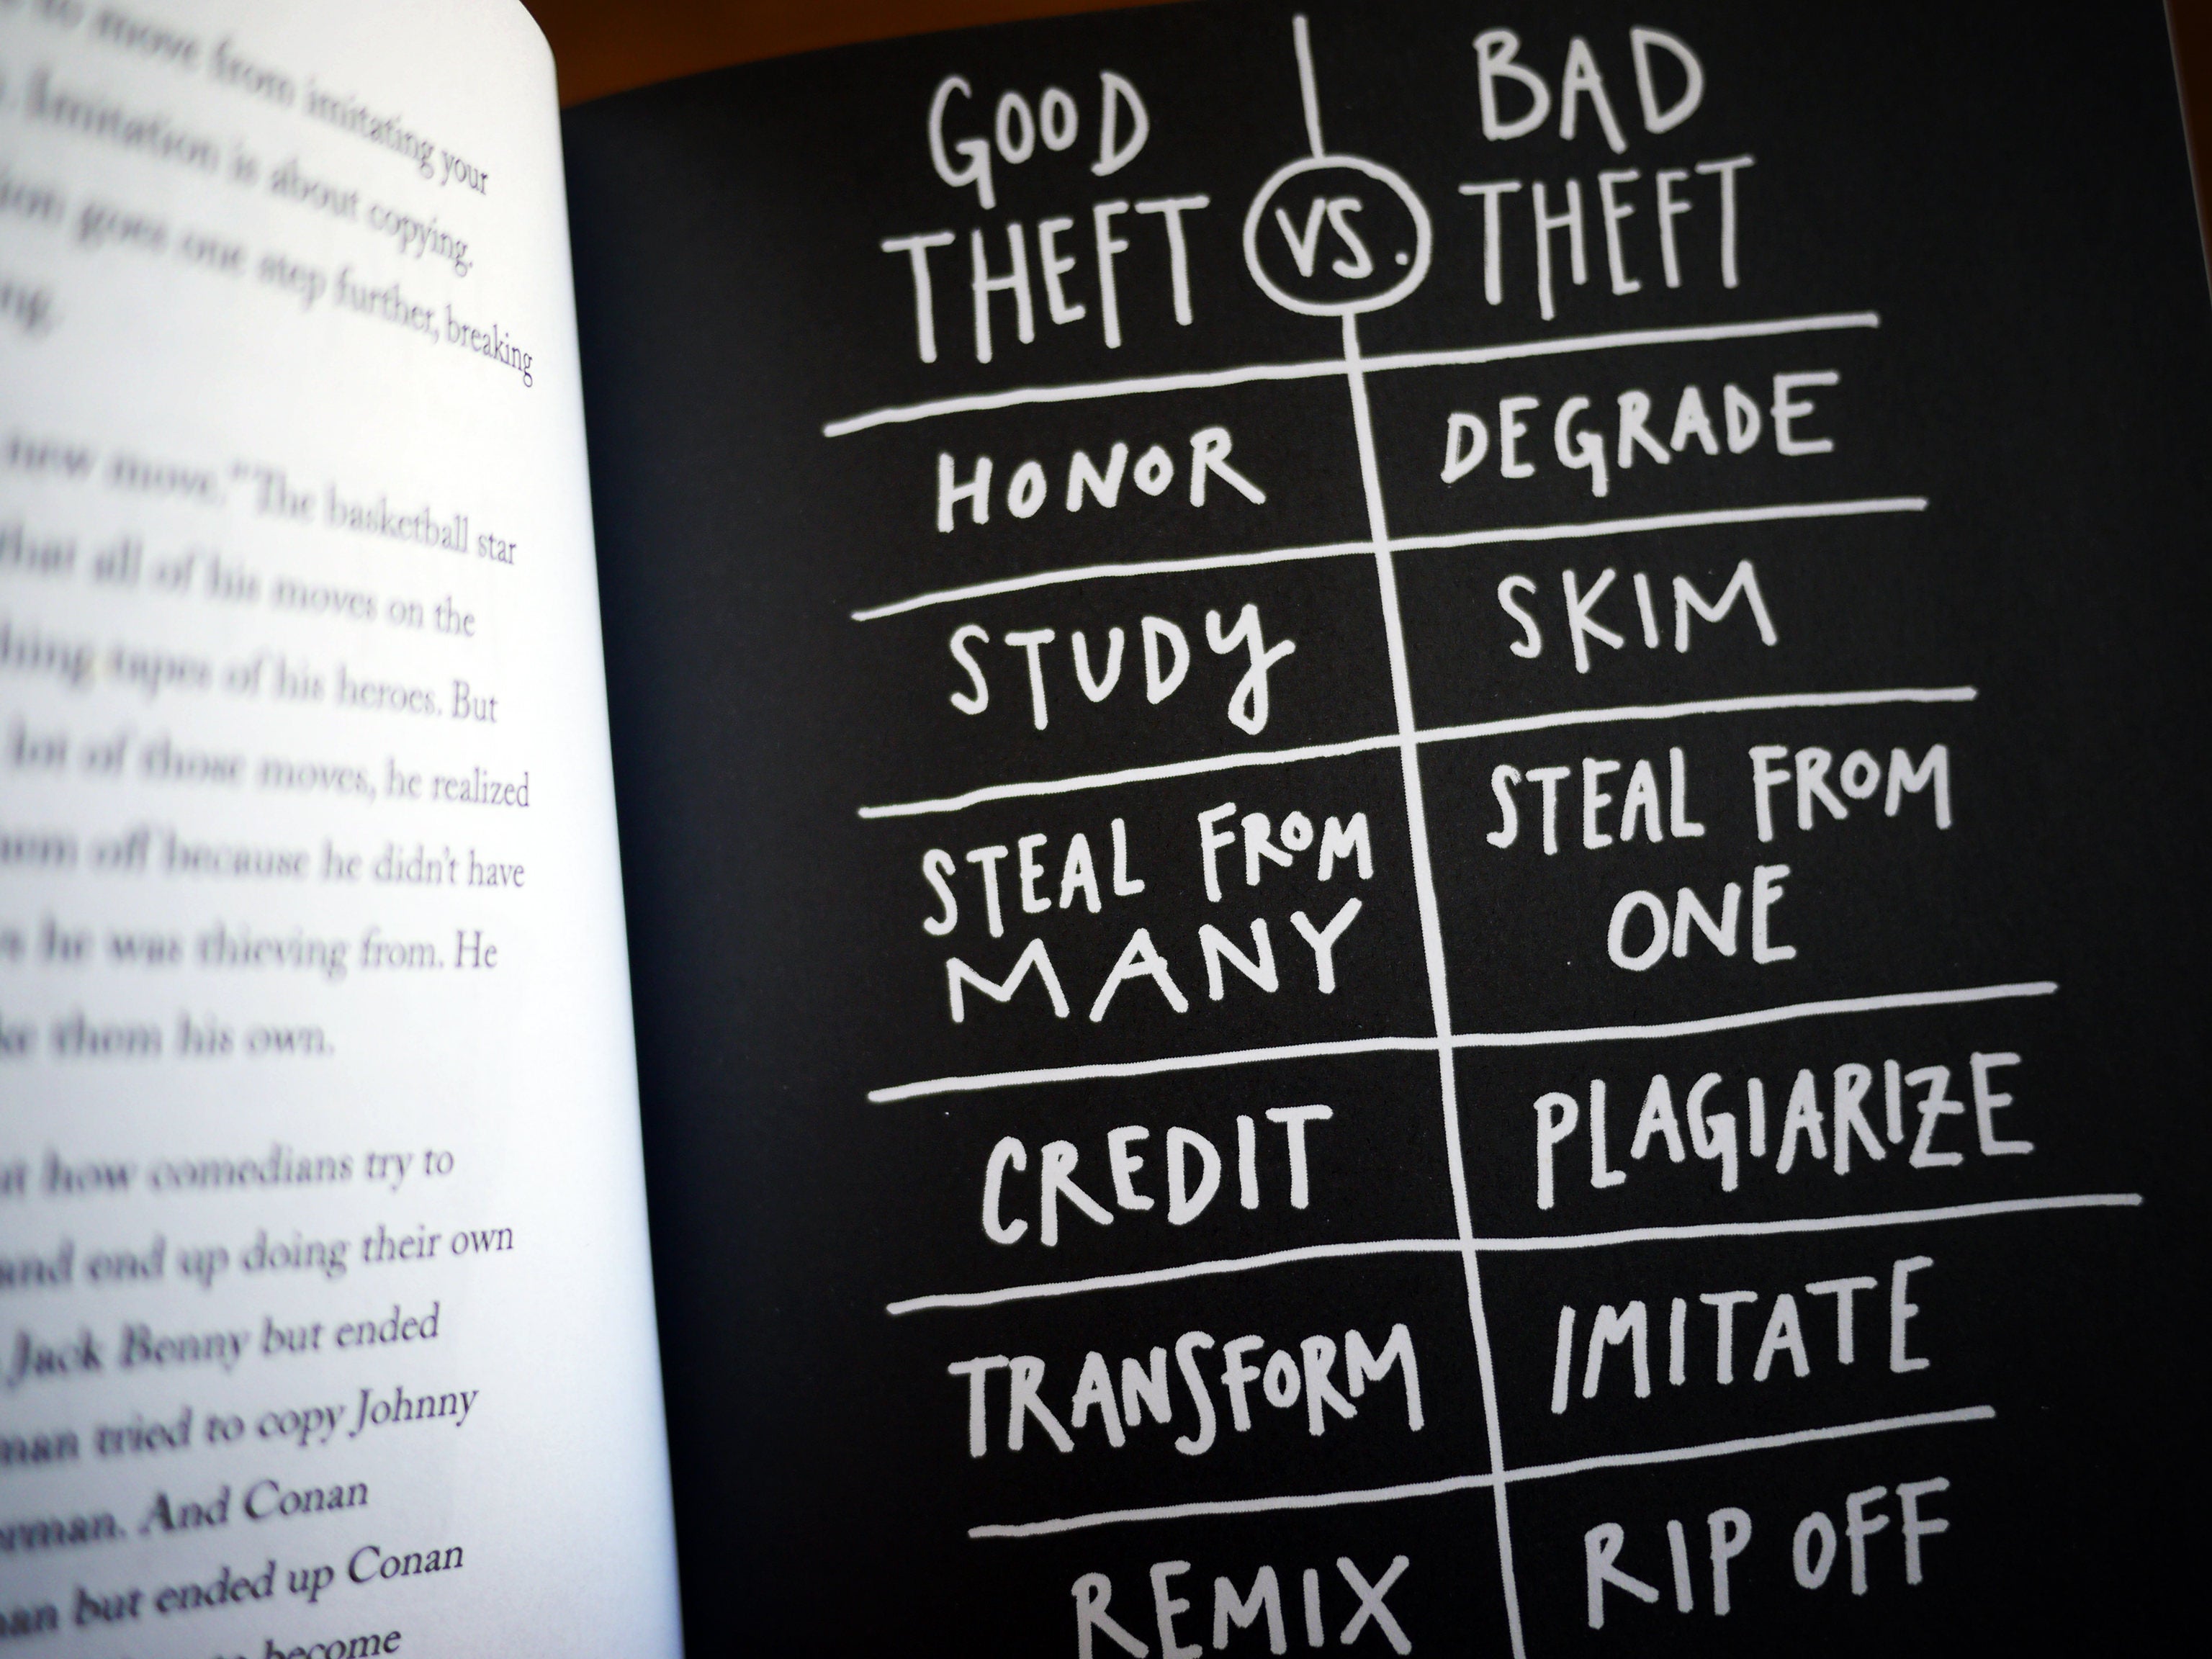 to move from imitating your
. Imitation is about copying.
goes one step further, breaking
new move." The basketball star
that all of his moves on the
tapes of his heroes. But
lot of those moves, he realized
off because he didn't have
he was thieving from. He
them his own.
how comedians try to
and end up doing their own
Jack Benny but ended
tried to copy Johnny
And Conan
but ended up Conan
become
GOOD
THEFT
VS.
BAD
THEFT
HONOR
DEGRADE
STUDY
SKIM
STEAL FROM
MANY
STEAL FROM
ONE
CREDIT
PLAGIARIZE
TRANSFORM
IMITATE
REMIX
RIP OFF